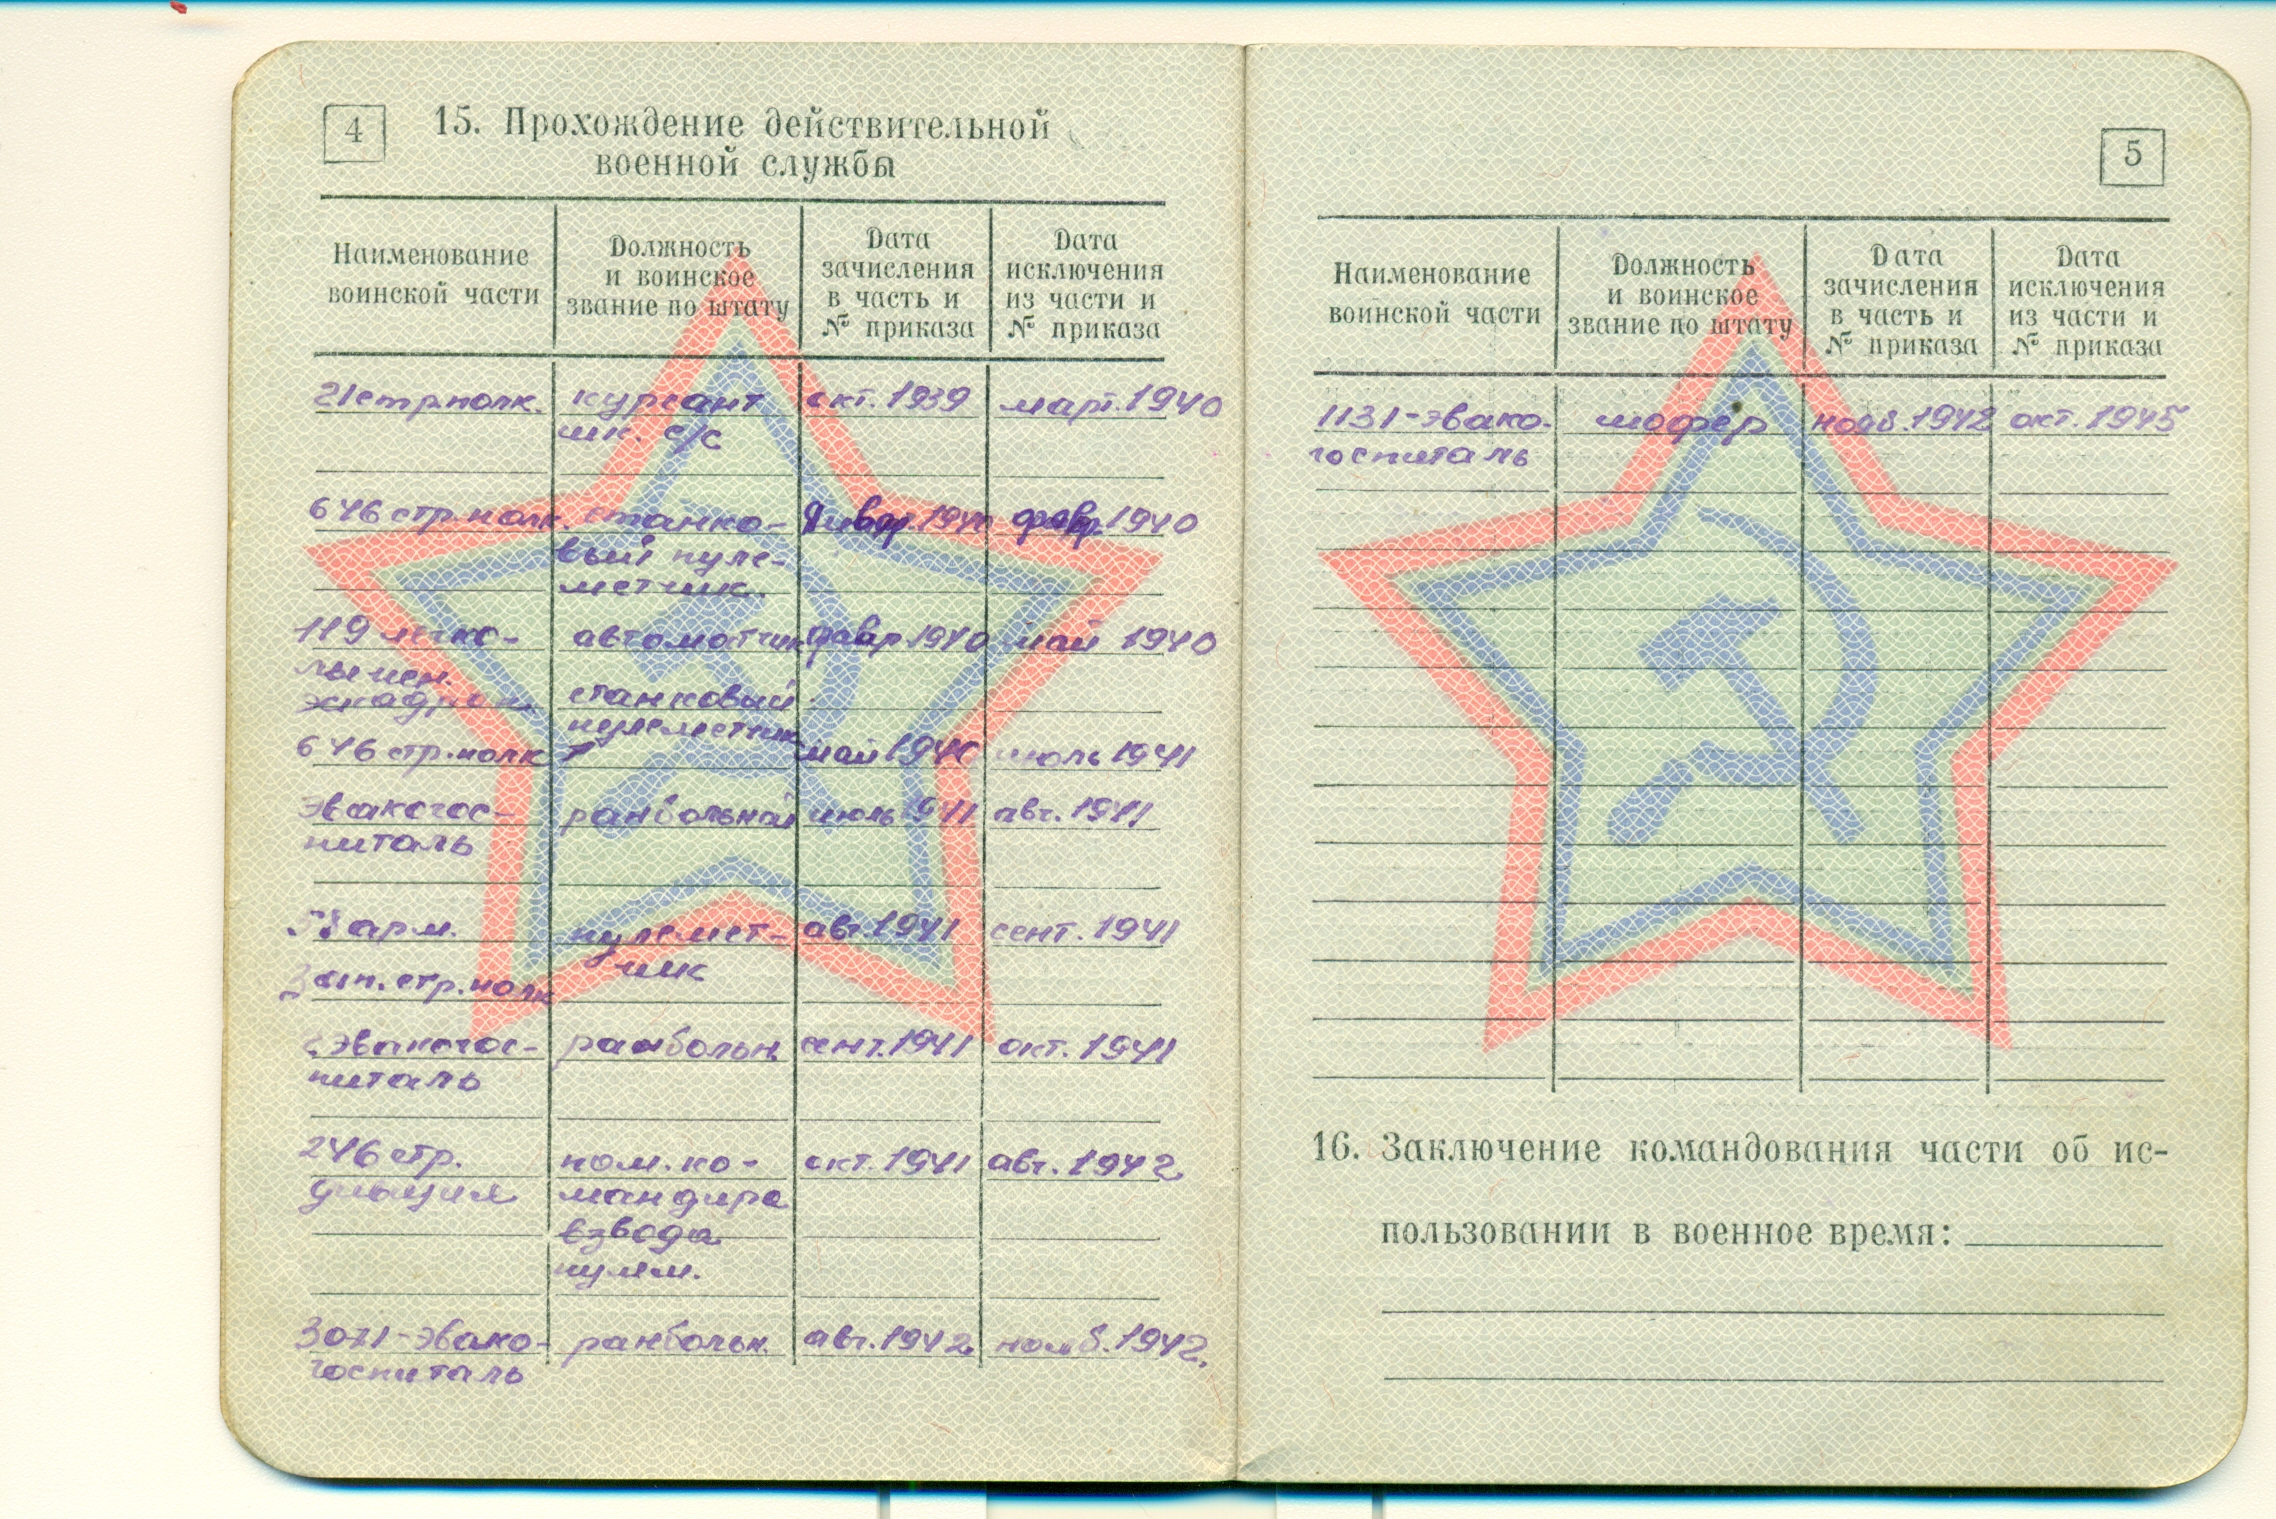 4
15. Прохождение действительной
военной службы
Наименование
воинской части
Должность
и воинское
звание по штату
Дата
зачисления
в часть и
№ приказа
Дата
исключения
из части и
№ приказа
21 стр.полк. курсант окт. 1939 март. 1940
шк. с/с
646 стр.полк. станко- январ. 1940 февр. 1940
вый пуле-
метчик.
119 легко- автоматчик февр 1940 май 1940
лыжн.
эскадрон станковый
пулеметчик
646 стр.полк май 1940 июль 1941
эвакогос- ранбольной июль 1941 авг. 1941
питаль
58 арм. пулемет- авг. 1941 сент. 1941
чик
Зап. стр. полк
эвакогос- ранбольн. сент. 1941 окт. 1941
питаль
246 стр. пом. ко- окт. 1941 авг. 1942
дивизия мандира
взвода
пулем.
3071-эвако- ранбольн. авг. 1942 нояб. 1942.
госпиталь
5
Наименование
воинской части
Должность
и воинское
звание по штату
Дата
зачисления
в часть и
№ приказа
Дата
исключения
из части и
№ приказа
1131-эвако- шофер нояб. 1942 окт. 1945
госпиталь
16. Заключение командования части об ис-
пользовании в военное время: